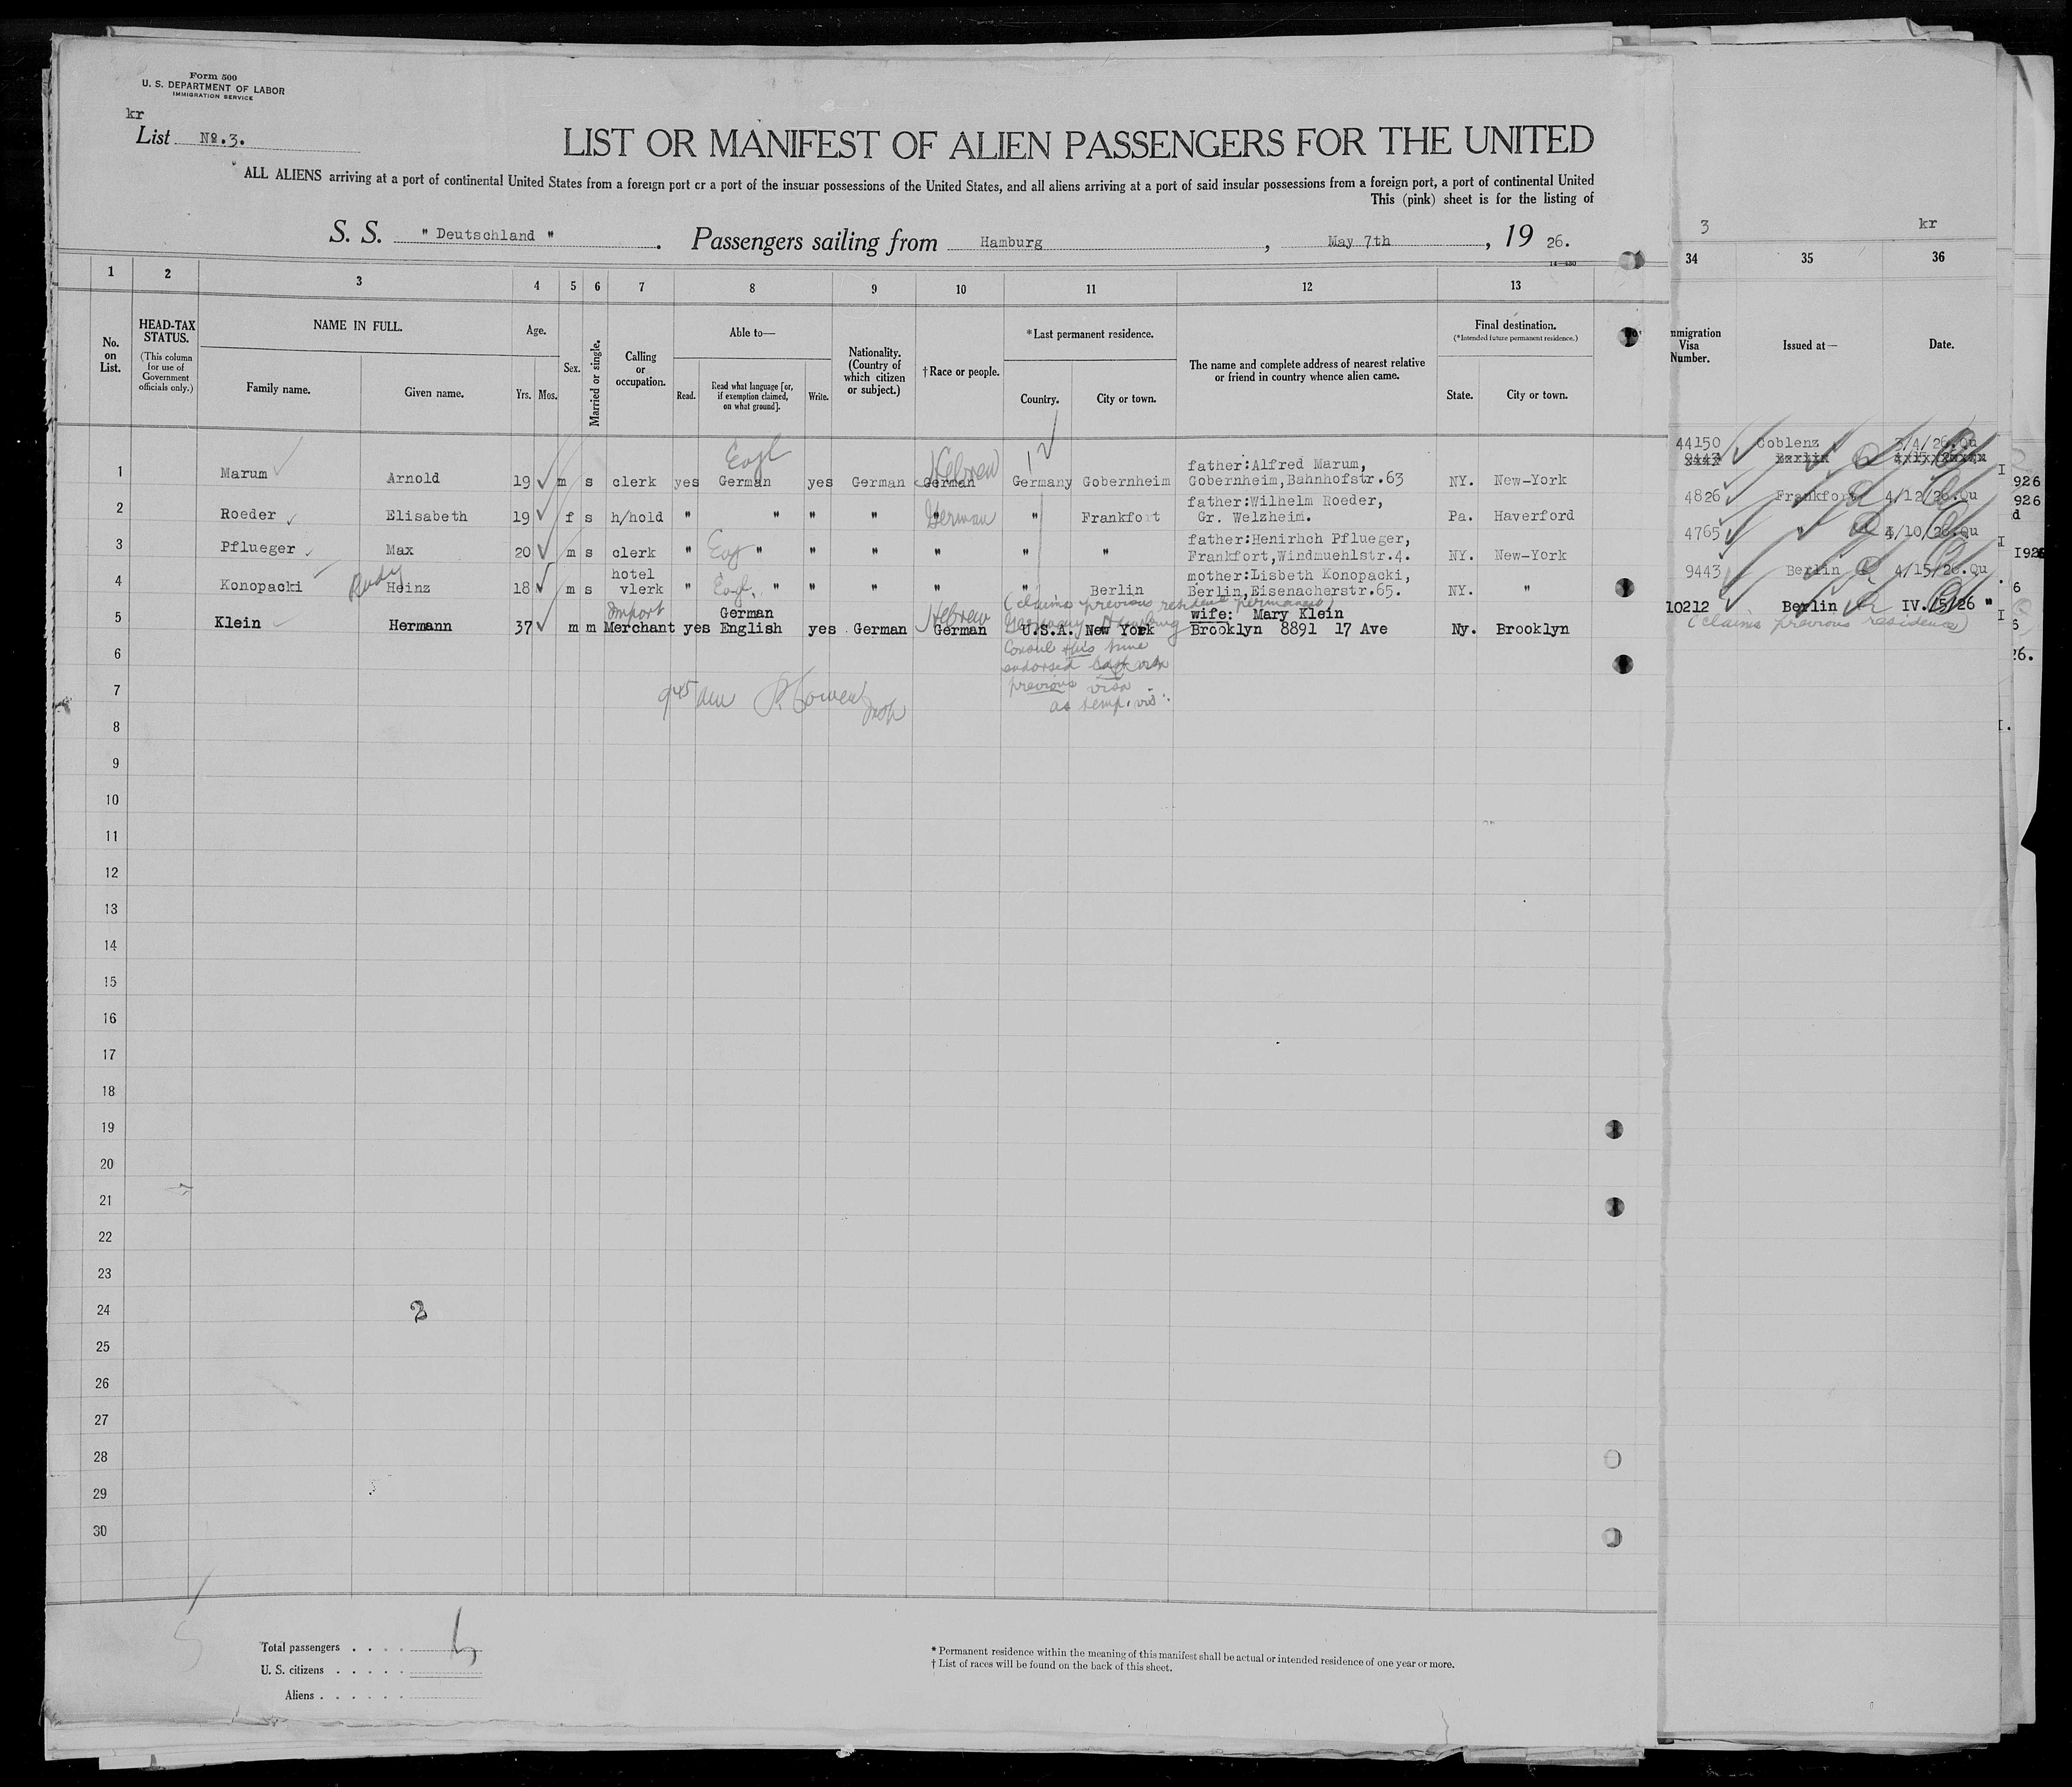 Form 500
U. S. DEPARTMENT OF LABOR
IMMIGRATION SERVICE
kr
List No.3.
LIST OR MANIFEST OF ALIEN PASSENGERS FOR THE UNITED
ALL ALIENS arriving at a port of continental United States from a foreign port or a port of the insular possessions of the United States, and all aliens arriving at a port of said insular possessions from a foreign port, a port of continental United
This (pink) sheet is for the listing of
S. S. " Deutschland " . Passengers sailing from Hamburg , May 7th , 19 26.
14-430
3 kr
1 2 3 4 5 6 7 8 9 10 11 12 13 34 35 36
No. on List.
HEAD-TAX STATUS.
(This column for use of Government officials only.)
NAME IN FULL.
Family name. Given name.
Age.
Yrs. Mos.
Sex.
Married or single.
Calling or occupation.
Able to—
Read. Read what language [or, if exemption claimed, on what ground]. Write.
Nationality. (Country of which citizen or subject.)
†Race or people.
*Last permanent residence.
Country. City or town.
The name and complete address of nearest relative or friend in country whence alien came.
Final destination.
(*Intended future permanent residence.)
State. City or town.
mmigration Visa Number.
Issued at—
Date.
Engl Hebrew 44150 Coblenz 3/4/26.Qu
father:Alfred Marum, 9443 Berlin
1 Marum Arnold 19 m s clerk yes German yes German German Germany Gobernheim Gobernheim,Bahnhofstr.63 NY. New-York
father:Wilhelm Roeder, 4826 Frankfort 4/12/26.Qu
2 Roeder Elisabeth 19 f s h/hold " " " " German " Frankfort Gr. Welzheim. Pa. Haverford
father:Henirhch Pflueger, 4765 4/10/26.Qu
3 Pflueger Max 20 m s clerk " Eng " " " " " " Frankfort,Windmuehlstr.4. NY. New-York
hotel mother:Lisbeth Konopacki, 9443 Berlin 4/15/26.Qu
4 Konopacki Rudy Heinz 18 m s vlerk " Engl. " " " " " Berlin Berlin,Eisenacherstr.65. NY. "
(claims previous resident permanent)
Import German Hebrew Germany wife: Mary Klein 10212 Berlin IV.15/26 "
5 Klein Hermann 37 m m Merchant yes English yes German German U.S.A. New York Brooklyn 8891 17 Ave Ny. Brooklyn
(claims previous residence)
Consul this time
endorsed
previous visa
as temp. vis.
9 45 am
6
7
8
9
10
11
12
13
14
15
16
17
18
19
20
21
22
23
24
25
26
27
28
29
30
Total passengers . . . .
U. S. citizens . . . . .
Aliens . . . . . .
* Permanent residence within the meaning of this manifest shall be actual or intended residence of one year or more.
† List of races will be found on the back of this sheet.